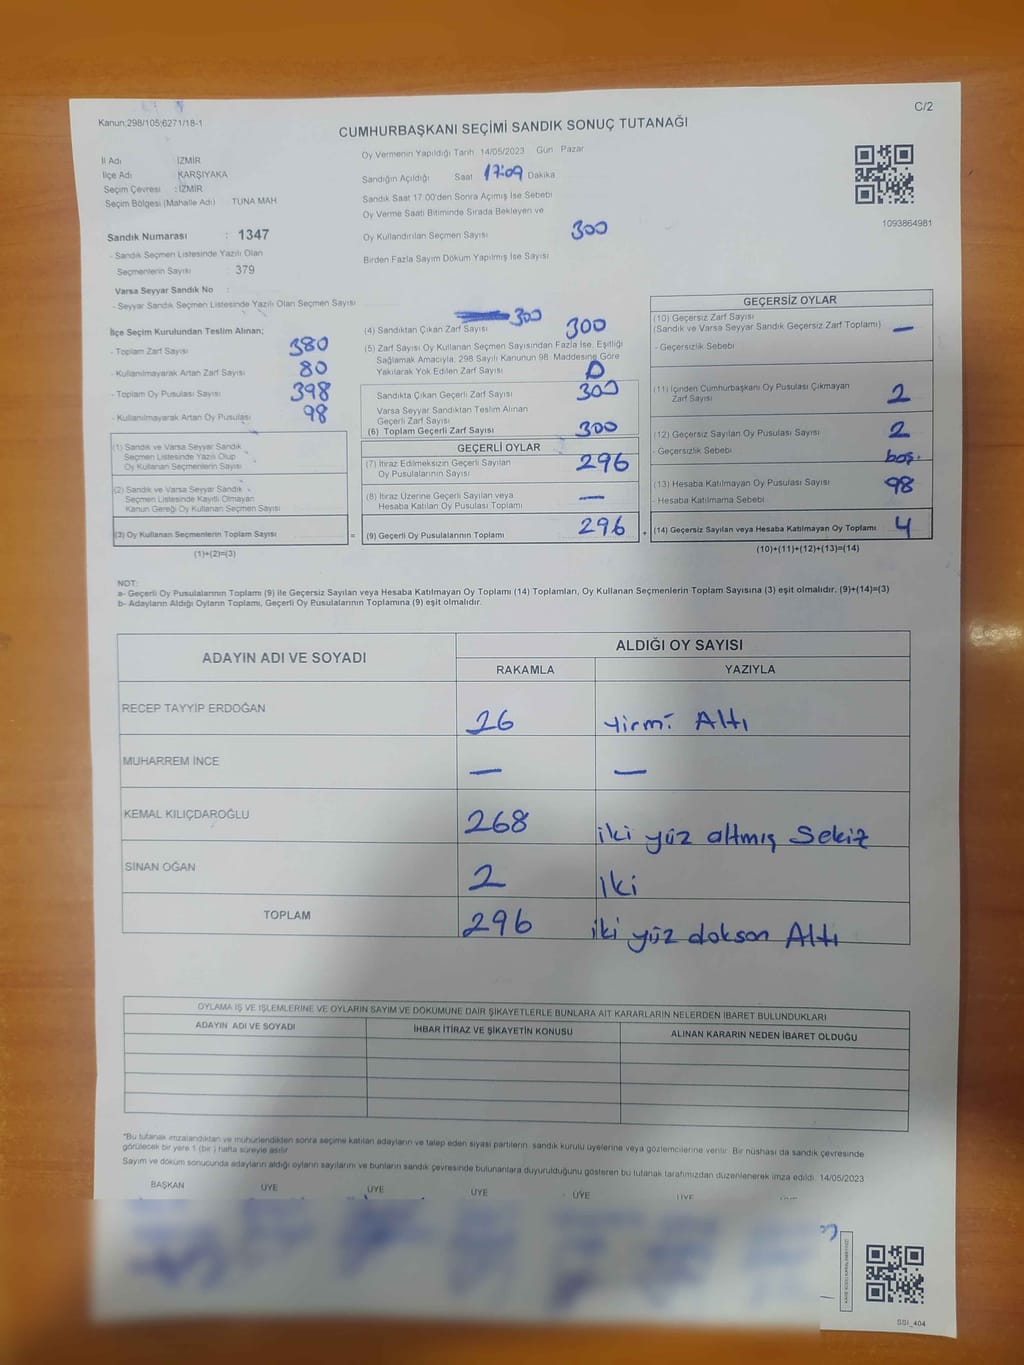 Kanun:298/105;6271/18-1
C/2
CUMHURBAŞKANI SEÇİMİ SANDIK SONUÇ TUTANAĞI
İl Adı : İZMİR
İlçe Adı KARŞIYAKA
Seçim Çevresi : İZMİR
Seçim Bölgesi (Mahalle Adı) TUNA MAH
Sandık Numarası : 1347
- Sandık Seçmen Listesinde Yazılı Olan
Seçmenlerin Sayısı : 379
Varsa Seyyar Sandık No :
- Seyyar Sandık Seçmen Listesinde Yazılı Olan Seçmen Sayısı
Oy Vermenin Yapıldığı Tarih 14/05/2023 Gün Pazar
Sandığın Açıldığı Saat 17:09 Dakika
Sandık Saat 17.00'den Sonra Açımış İse Sebebi
Oy Verme Saati Bitiminde Sırada Bekleyen ve
Oy Kullandırılan Seçmen Sayısı 300
Birden Fazla Sayım Döküm Yapılmış İse Sayısı
1093864981
İlçe Seçim Kurulundan Teslim Alınan;
- Toplam Zarf Sayısı 380
- Kullanılmayarak Artan Zarf Sayısı 80
- Toplam Oy Pusulası Sayısı 398
- Kullanılmayarak Artan Oy Pusulası 98
(1) Sandık ve Varsa Seyyar Sandık
Seçmen Listesinde Yazılı Olup
Oy Kullanan Seçmenlerin Sayısı
(2) Sandık ve Varsa Seyyar Sandık
Seçmen Listesinde Kayıtlı Olmayan
Kanun Gereği Oy Kullanan Seçmen Sayısı
(3) Oy Kullanan Seçmenlerin Toplam Sayısı =
(1)+(2)=(3)
300
(4) Sandıktan Çıkan Zarf Sayısı 300
(5) Zarf Sayısı Oy Kullanan Seçmen Sayısından Fazla İse, Eşitliği
Sağlamak Amacıyla, 298 Sayılı Kanunun 98. Maddesine Göre
Yakılarak Yok Edilen Zarf Sayısı 0
Sandıkta Çıkan Geçerli Zarf Sayısı 300
Varsa Seyyar Sandıktan Teslim Alınan
Geçerli Zarf Sayısı
(6) Toplam Geçerli Zarf Sayısı 300
GEÇERLİ OYLAR
(7) İtiraz Edilmeksizin Geçerli Sayılan
Oy Pusulalarının Sayısı 296
(8) İtiraz Üzerine Geçerli Sayılan veya
Hesaba Katılan Oy Pusulası Toplamı —
(9) Geçerli Oy Pusulalarının Toplamı 296 +
GEÇERSİZ OYLAR
(10) Geçersiz Zarf Sayısı
(Sandık ve Varsa Seyyar Sandık Geçersiz Zarf Toplamı) —
- Geçersizlik Sebebi
(11) İçinden Cumhurbaşkanı Oy Pusulası Çıkmayan
Zarf Sayısı 2
(12) Geçersiz Sayılan Oy Pusulası Sayısı 2
- Geçersizlik Sebebi boş.
(13) Hesaba Katılmayan Oy Pusulası Sayısı 98
- Hesaba Katılmama Sebebi
(14) Geçersiz Sayılan veya Hesaba Katılmayan Oy Toplamı 4
(10)+(11)+(12)+(13)=(14)
NOT:
a- Geçerli Oy Pusulalarının Toplamı (9) ile Geçersiz Sayılan veya Hesaba Katılmayan Oy Toplamı (14) Toplamları, Oy Kullanan Seçmenlerin Toplam Sayısına (3) eşit olmalıdır. (9)+(14)=(3)
b- Adayların Aldığı Oyların Toplamı, Geçerli Oy Pusulalarının Toplamına (9) eşit olmalıdır.
ADAYIN ADI VE SOYADI
ALDIĞI OY SAYISI
RAKAMLA YAZIYLA
RECEP TAYYİP ERDOĞAN 26 yirmi Altı
MUHARREM İNCE — —
KEMAL KILIÇDAROĞLU 268 iki yüz altmış Sekiz
SİNAN OĞAN 2 Iki
TOPLAM 296 iki yüz dokson Altı
OYLAMA İŞ VE İŞLEMLERİNE VE OYLARIN SAYIM VE DÖKÜMÜNE DAİR ŞİKAYETLERLE BUNLARA AİT KARARLARIN NELERDEN İBARET BULUNDUKLARI
ADAYIN ADI VE SOYADI İHBAR İTİRAZ VE ŞİKAYETİN KONUSU ALINAN KARARIN NEDEN İBARET OLDUĞU
*Bu tutanak imzalandıktan ve mühürlendikten sonra seçime katılan adayların ve talep eden siyasi partilerin, sandık kurulu üyelerine veya gözlemcilerine verilir. Bir nüshası da sandık çevresinde
görülecek bir yere 1 (bir ) hafta süreyle asılır
Sayım ve döküm sonucunda adayların aldığı oyların sayılarını ve bunların sandık çevresinde bulunanlara duyurulduğunu gösteren bu tutanak tarafımızdan düzenlenerek imza edildi. 14/05/2023
BAŞKAN ÜYE ÜYE ÜYE ÜYE ÜYE
SSI_404